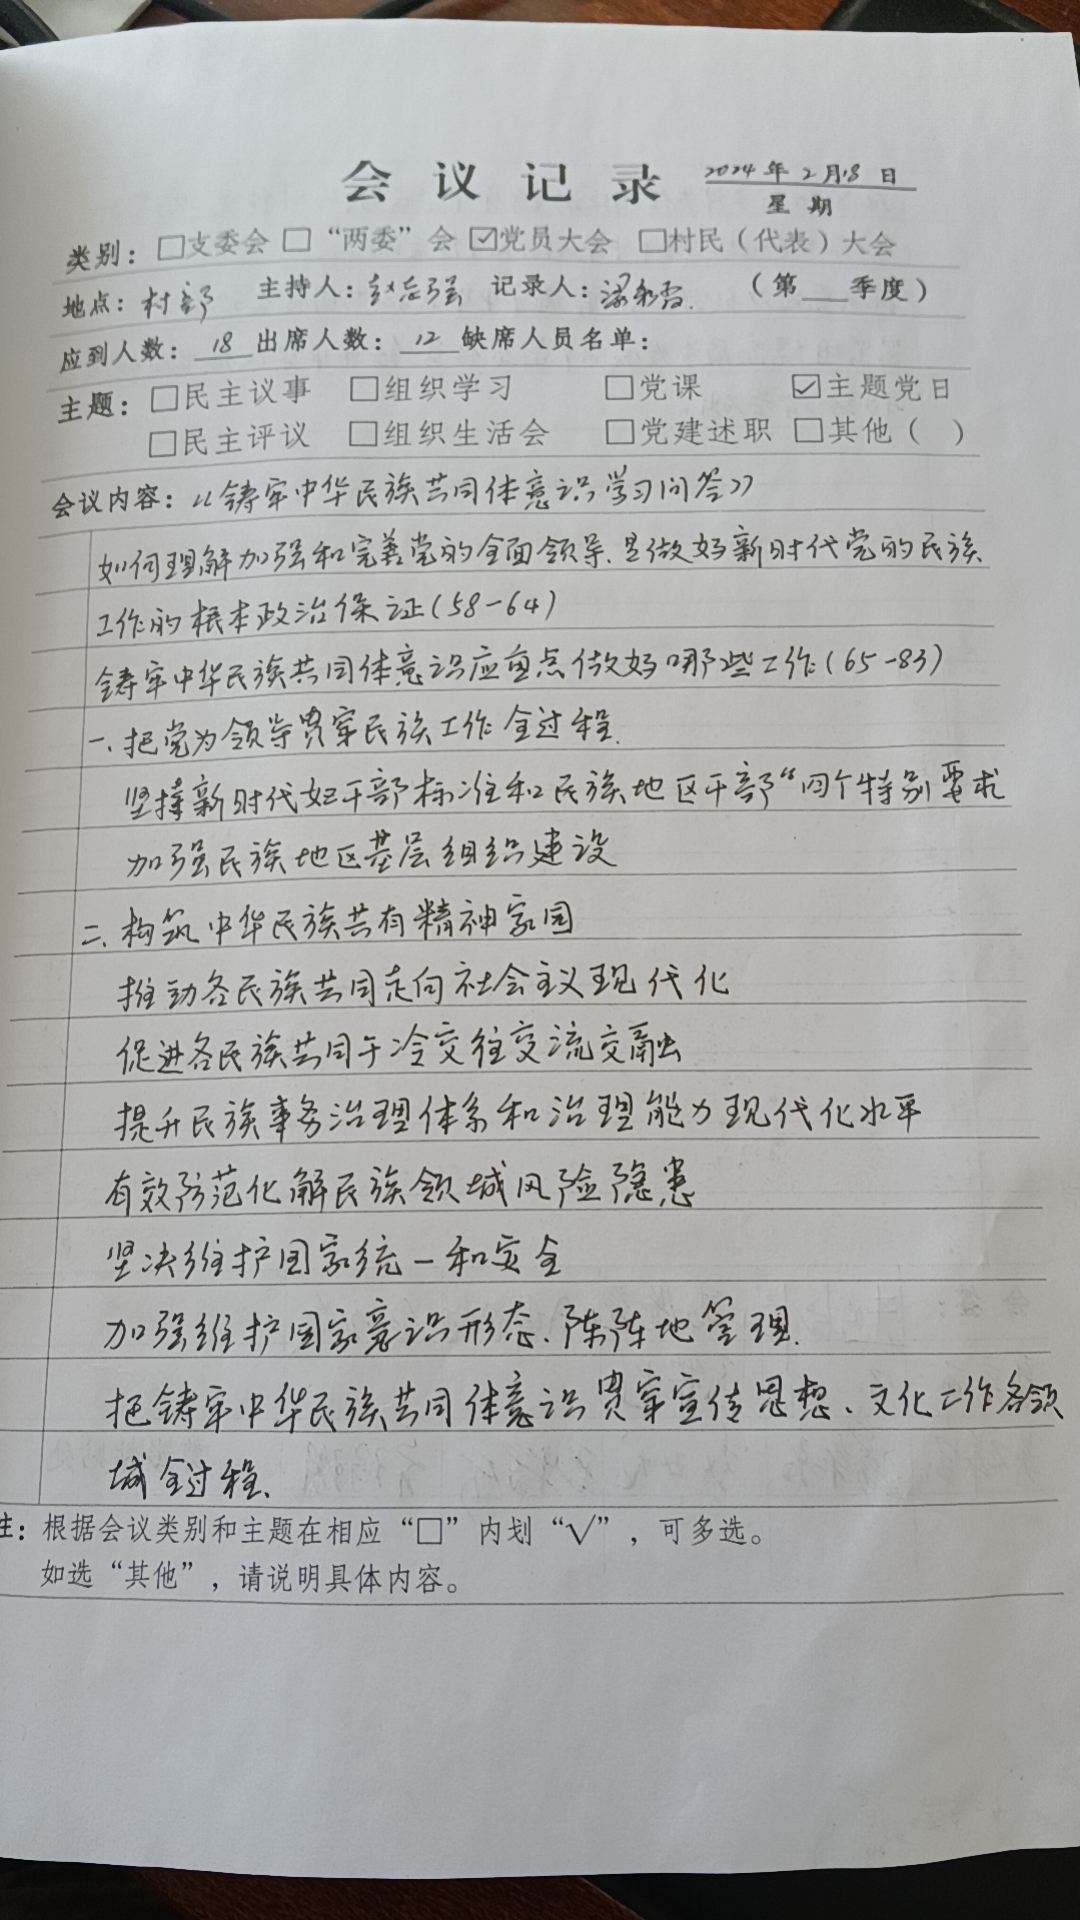 会议记录 2024年2月18日
星期
类别：□支委会 □“两委”会 ☑党员大会 □村民（代表）大会
地点：村部 主持人： 记录人： （第___季度）
应到人数：18 出席人数：12 缺席人员名单：
主题：□民主议事 □组织学习 □党课 ☑主题党日
□民主评议 □组织生活会 □党建述职 □其他（ ）
会议内容：《铸牢中华民族共同体意识学习问答》
如何理解加强和完善党的全面领导、是做好新时代党的民族
工作的根本政治保证（58-64）
铸牢中华民族共同体意识应重点做好哪些工作（65-83）
一、把党为领导贯穿民族工作全过程.
坚持新时代好干部标准和民族地区干部“四个特别要求
加强民族地区基层组织建设
二、构筑中华民族共有精神家园
推动各民族共同走向社会主义现代化
促进各民族共同于冷交往交流交融
提升民族事务治理体系和治理能力现代化水平
有效防范化解民族领域风险隐患
坚决维护国家统一和安全
加强维护国家意识形态、阵阵地管理.
把铸牢中华民族共同体意识贯穿宣传思想、文化工作各领
域全过程、
注：根据会议类别和主题在相应“□”内划“√”，可多选。
如选“其他”，请说明具体内容。